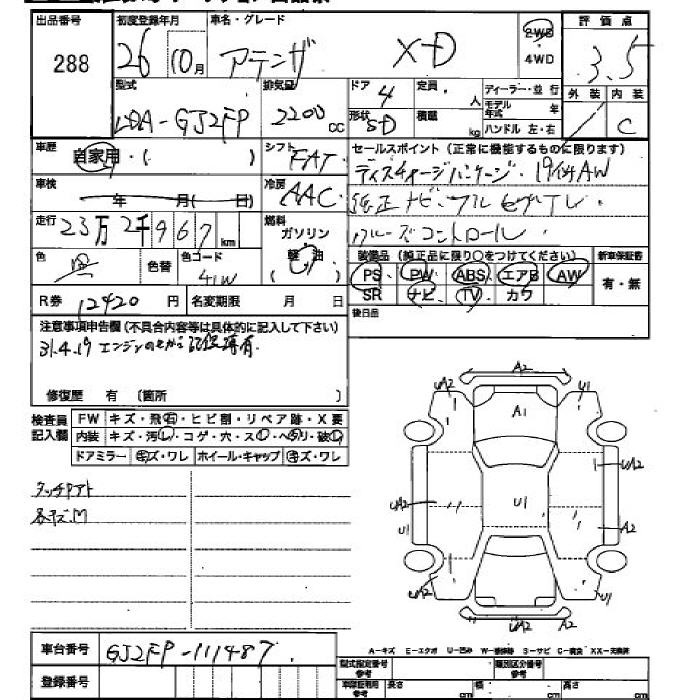 出品番号 初度登録年月 車名・グレード 評価点
288 26 10月 アテンザ XD 2WD 4WD 3.5
型式 排気量 ドア 定員 ディーラー・並行 外装 内装
LDA-GJ2FP 2200cc 4 人 モデル年式 年 C
形状 積載 ハンドル 左・右
SD kg
車歴 自家用・( ) シフト FAT セールスポイント(正常に機能するものに限ります)
ディスチャージパッケージ・19インチAW
車検 年 月( 日) 冷房 AAC
純正ナビ・フルセグTV・
走行 23万2千967km 燃料 ガソリン 軽油
クルーズコントロール
色 黒 色替 色コード 41W
装備品(純正品に限り○をつけてください) 新車保証書
PS PW ABS エアB AW 有・無
R券 12420円 名変期限 月 日
SR ナビ TV カワ
後日品
注意事項申告欄(不具合内容等は具体的に記入して下さい)
31.4.19 エンジンのせかえ記録簿有
修復歴 有 (箇所 )
検査員記入欄 FW キズ・飛石・ヒビ割・リペア跡・X要
内装 キズ・汚レ・コゲ・穴・スレ・ヘタリ・破レ
ドアミラー キズ・ワレ ホイール・キャップ キズ・ワレ
タッチアト
各キズ凹
A2
UA2 U1
A1
UA2
UA2 U1
U1 A2
UA2 U1
UA2
車台番号 GJ2FP-111487
A-キズ E-エクボ U-凹み W-補修跡 S-サビ C-腐食 XX-交換済
登録番号 型式指定番号 参考 類別区分番号 参考
車庫証明用 参考 長さ cm 幅 cm 高さ cm